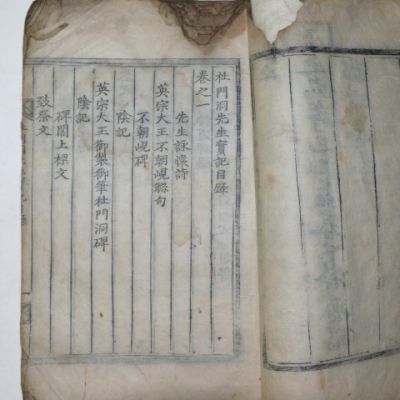 杜門洞先生實記目錄
卷之一
先生詠懷詩
英宗大王不朝峴聯句
不朝峴碑
陰記
英宗大王御製御筆杜門洞碑
陰記
碑閣上樑文
致祭文